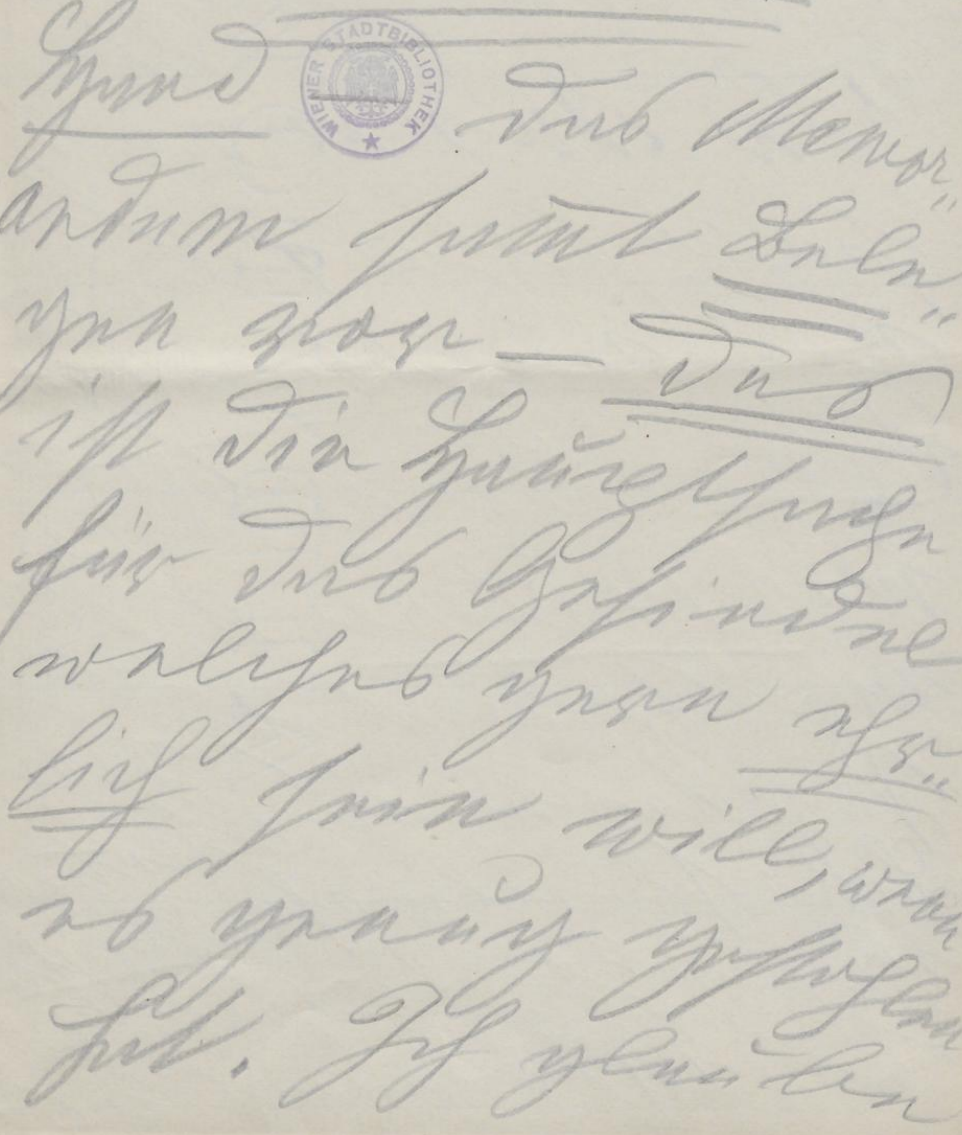 Hand
WIENER STADTBIBLIOTHEK
das Memor„
andum samt Bele„
gen vor — das
ist die Hauptsache
für das Gesindel
welches gern ehr„
lich sein will, wenn
es genug gestohlen
hat. Ich glaube